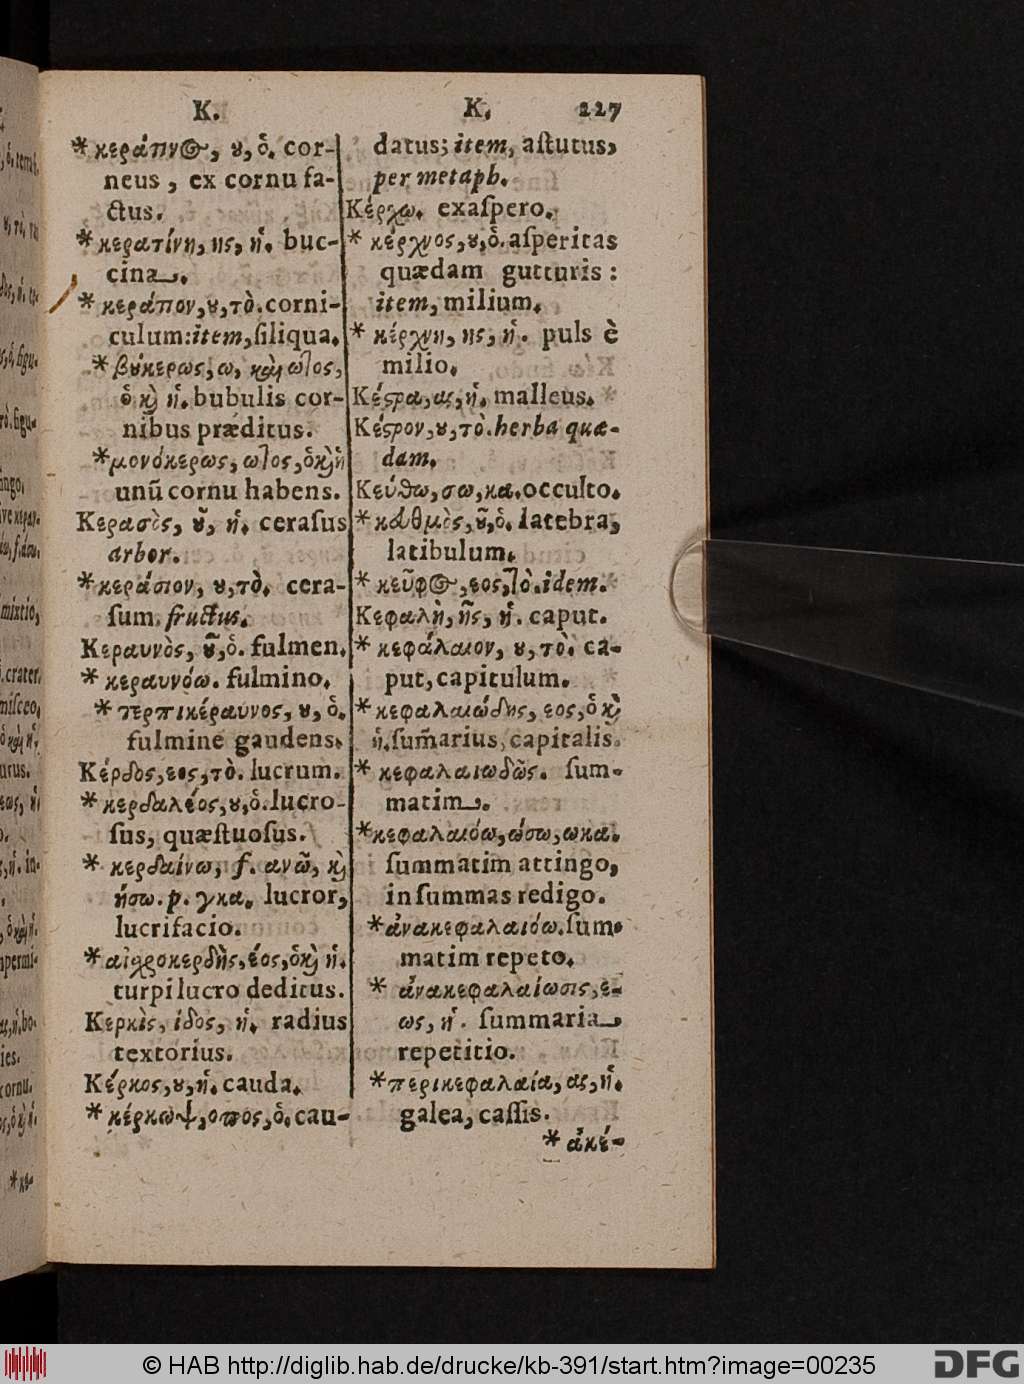 K.
* κεράτινος, ου, ὁ. cor-
neus, ex cornu fa-
ctus.
* κερατίνη, ης, ἡ. buc-
cina.
* κεράτιον, ου, τὸ. corni-
culum: item, ſiliqua.
* βούκερως, ω, καὶ ωτος,
ὁ κ̀ ἡ. bubulis cor-
nibus præditus.
* μονόκερως, ωτος, ὁ κ̀ ἡ
unũ cornu habens.
Κερασὸς, οῦ, ἡ. ceraſus
arbor.
* κεράσιον, ου, τὸ. cera-
ſum. fructus.
Κεραυνὸς, οῦ, ὁ. fulmen.
* κεραυνόω. fulmino.
* τερπικέραυνος, ου, ὁ.
fulmine gaudens.
Κέρδος, εος, τὸ. lucrum.
* κερδαλέος, ου, ὁ. lucro-
ſus, quæſtuoſus.
* κερδαίνω, f. ανῶ, κ̀
ήσω. p. γκα. lucror,
lucrifacio.
* αἰσχροκερδὴς, έος, ὁ κ̀ ἡ.
turpi lucro deditus.
Κερκὶς, ίδος, ἡ. radius
textorius.
Κέρκος, ου, ἡ. cauda.
* κέρκωψ, οπος, ὁ. cau-
K. 227
datus; item, aſtutus,
per metaph.
Κέρχω. exaſpero.
* κέρχνος, ου, ὁ. aſperitas
quædam gutturis:
item, milium.
* κέρχνη, ης, ἡ. puls è
milio.
Κέστρα, ας, ἡ. malleus.
Κέστρον, ου, τὸ. herba quæ-
dam.
Κεύθω, σω, κα. occulto.
* κευθμὸς, οῦ, ὁ. latebra,
latibulum.
* κεῦφος, εος, τὸ. idem.
Κεφαλὴ, ῆς, ἡ. caput.
* κεφάλαιον, ου, τὸ. ca-
put, capitulum.
* κεφαλαιώδης, εος, ὁ κ̀
ἡ. ſum̃arius, capitalis.
* κεφαλαιωδῶς. ſum-
matim.
* κεφαλαιόω, ώσω, ωκα.
ſummatim attingo,
in ſummas redigo.
* ἀνακεφαλαιόω. ſum-
matim repeto.
* ἀνακεφαλαίωσις, ε-
ως, ἡ. ſummaria
repetitio.
* περικεφαλαία, ας, ἡ.
galea, caſſis.
* ἀκέ-
© HAB http://diglib.hab.de/drucke/kb-391/start.htm?image=00235
DFG